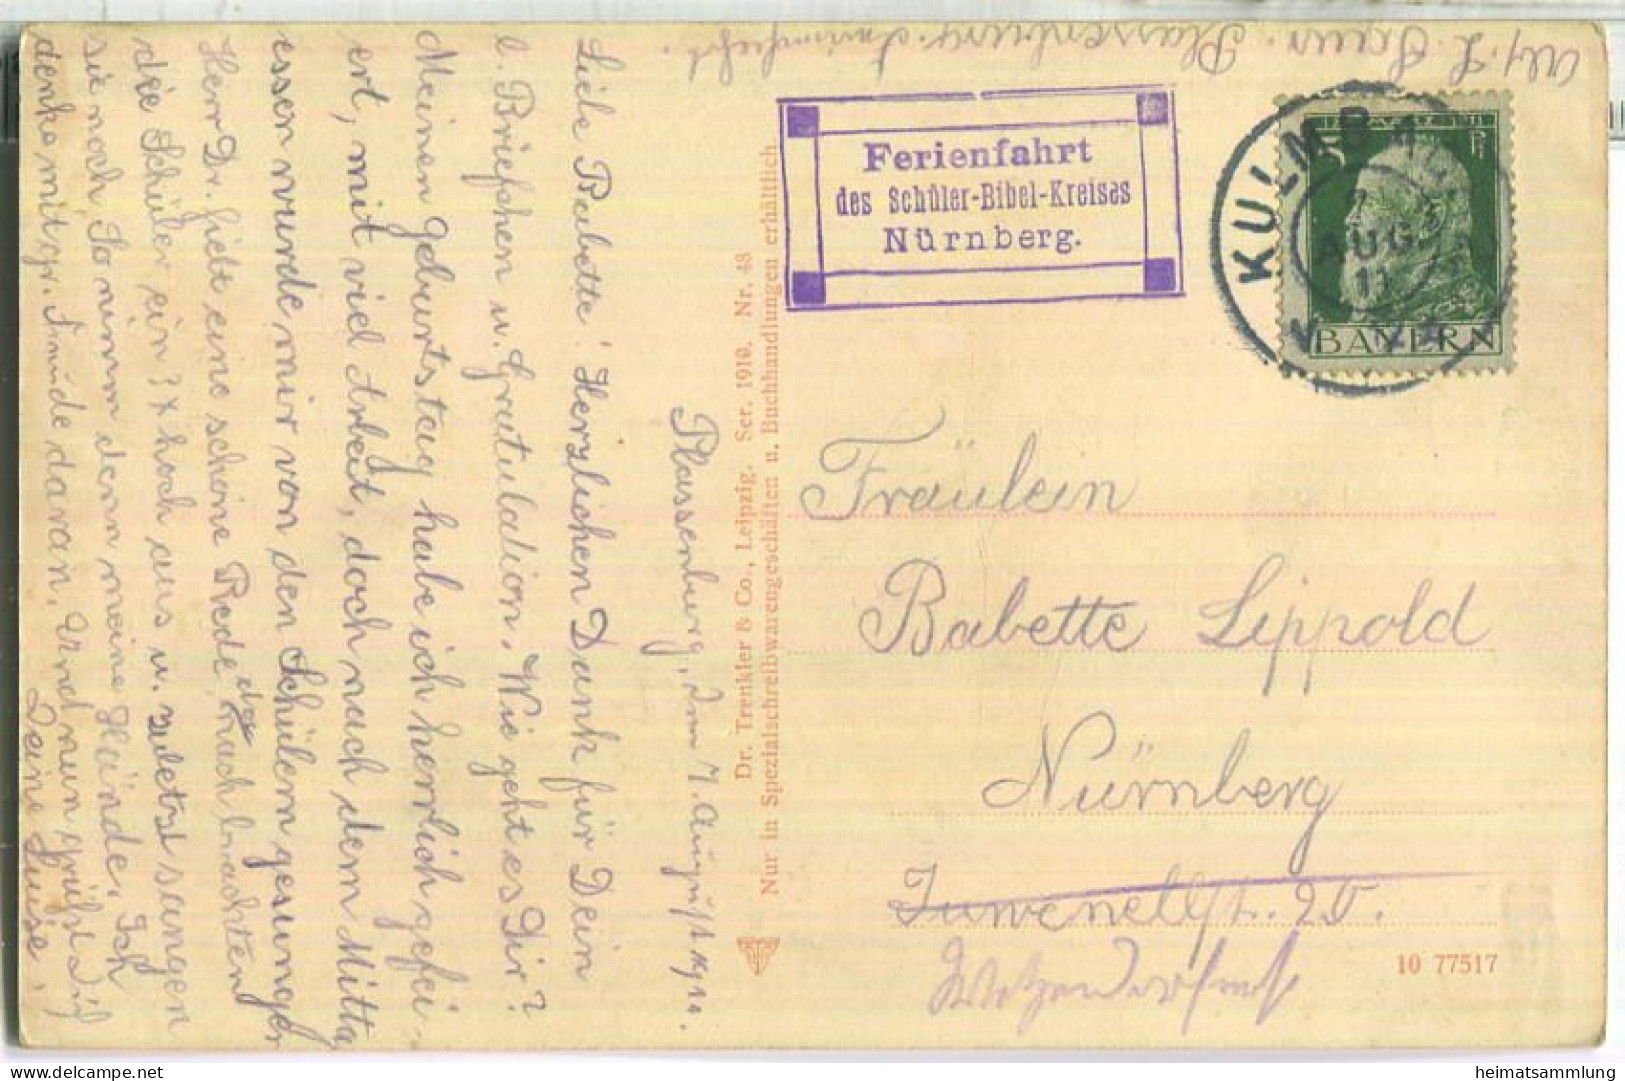 Plassenburg, den 7. August 1911.
Liebe Babette! Herzlichen Dank für Dein
l. Briefchen u. Gratulation. Wie geht es Dir?
Meinen Geburtstag habe ich herrlich gefei-
ert, mit viel Arbeit, doch nach dem Mittag
essen wurde mir von den Schülern gesungen
Herr Dr. hielt eine schöne Rede, da brachten
die Schüler ein 3x hoch aus u. zuletzt sangen
sie noch, So nimm denn meine Hände. Ich
denke mit gr. Freude daran. Und nun grüßt Dich
Deine Luise.
Abs. L.
Plassenburg.
Ferienfahrt
des Schüler-Bibel-Kreises
Nürnberg.
KULMB
7
AUG.
11
5 Pf
BAYERN
Dr. Trenkler & Co., Leipzig. Ser. 1910. Nr. 48
Nur in Spezialschreibwarengeschäften u. Buchhandlungen erhältlich.
Fräulein
Babette Lippold
Nürnberg
Juvenellstr. 20.
10 77517
heimatsammlung.de